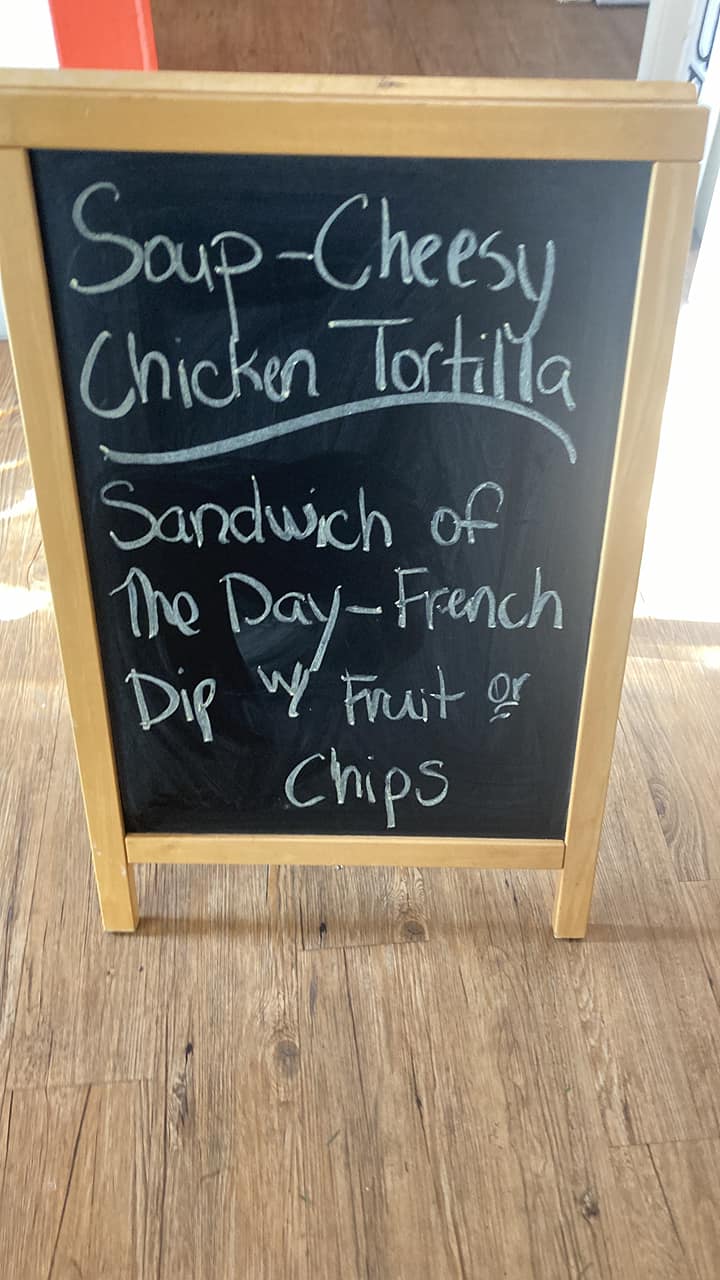 Soup - Cheesy
Chicken Tortilla
Sandwich of
The Day - French
Dip w/ Fruit or
Chips